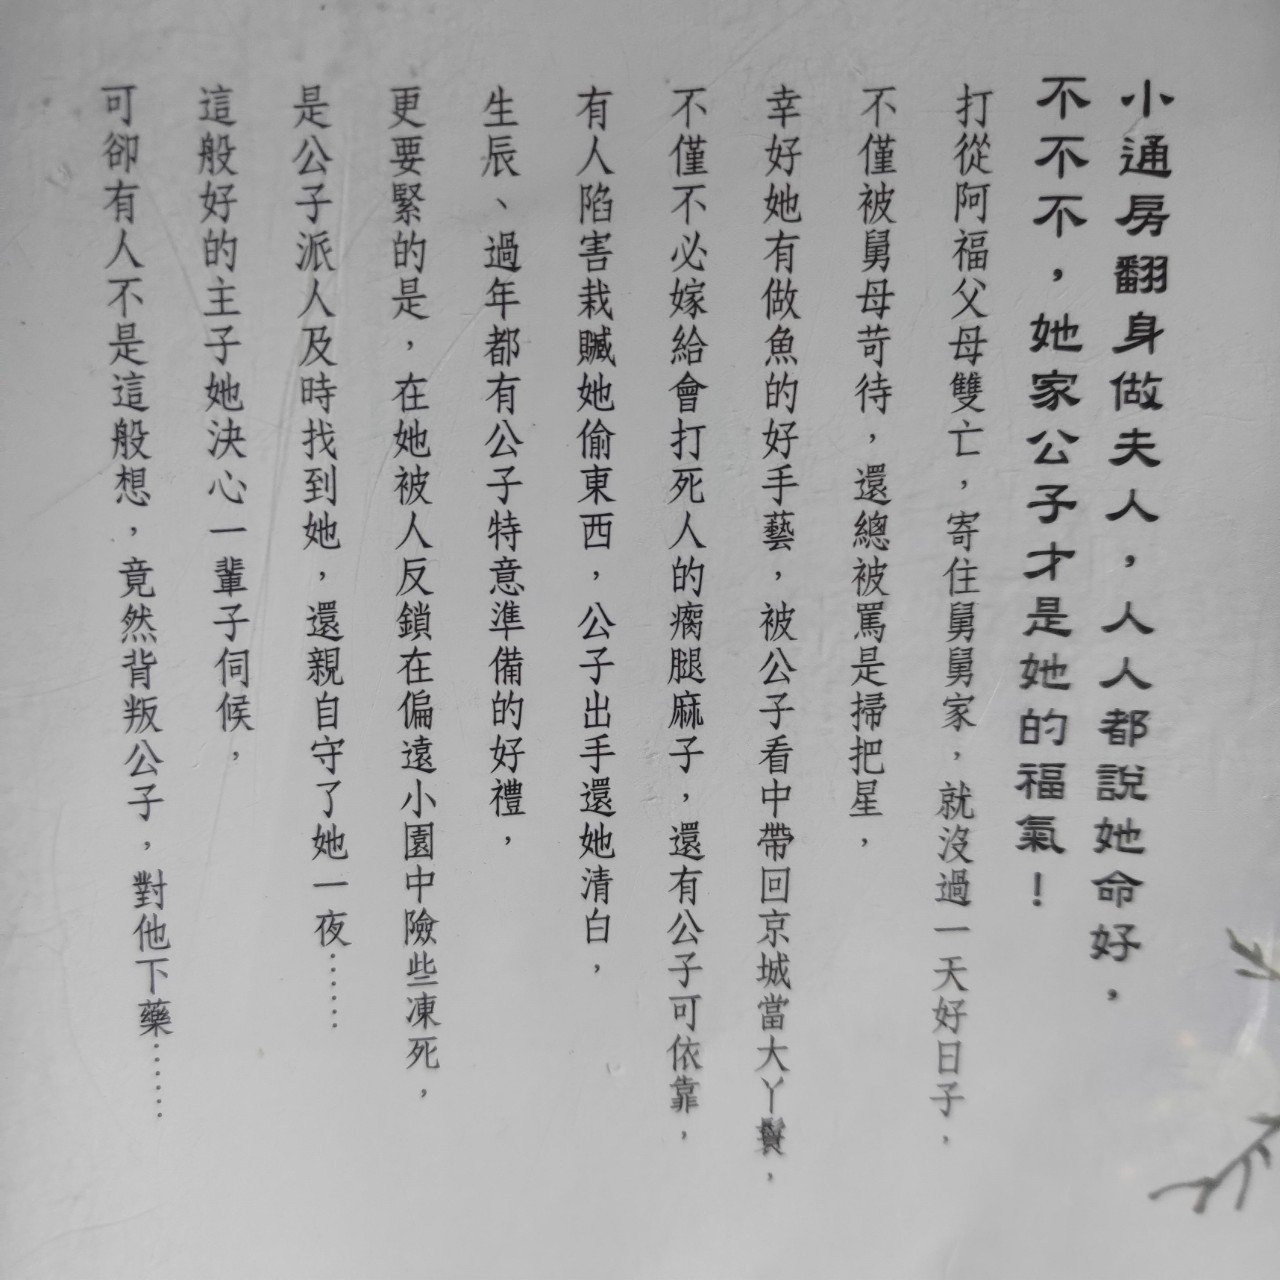 小通房翻身做夫人，人人都說她命好，
不不不，她家公子才是她的福氣！
打從阿福父母雙亡，寄住舅舅家，就沒過一天好日子，
不僅被舅母苛待，還總被罵是掃把星，
幸好她有做魚的好手藝，被公子看中帶回京城當大丫鬟，
不僅不必嫁給會打死人的瘸腿麻子，還有公子可依靠，
有人陷害栽贓她偷東西，公子出手還她清白，
生辰、過年都有公子特意準備的好禮，
更要緊的是，在她被人反鎖在偏遠小園中險些凍死，
是公子派人及時找到她，還親自守了她一夜……
這般好的主子她決心一輩子伺候，
可卻有人不是這般想，竟然背叛公子，對他下藥……